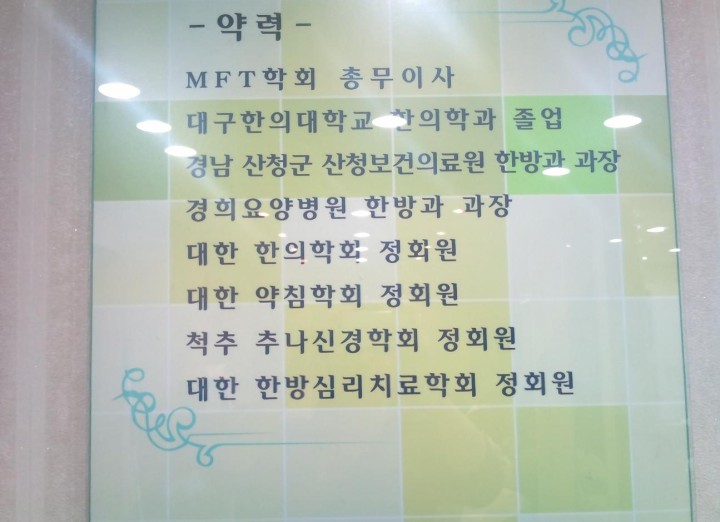 - 약력 -
MFT학회 총무이사
대구한의대학교 한의학과 졸업
경남 산청군 산청보건의료원 한방과 과장
경희요양병원 한방과 과장
대한 한의학회 정회원
대한 약침학회 정회원
척추 추나신경학회 정회원
대한 한방심리치료학회 정회원